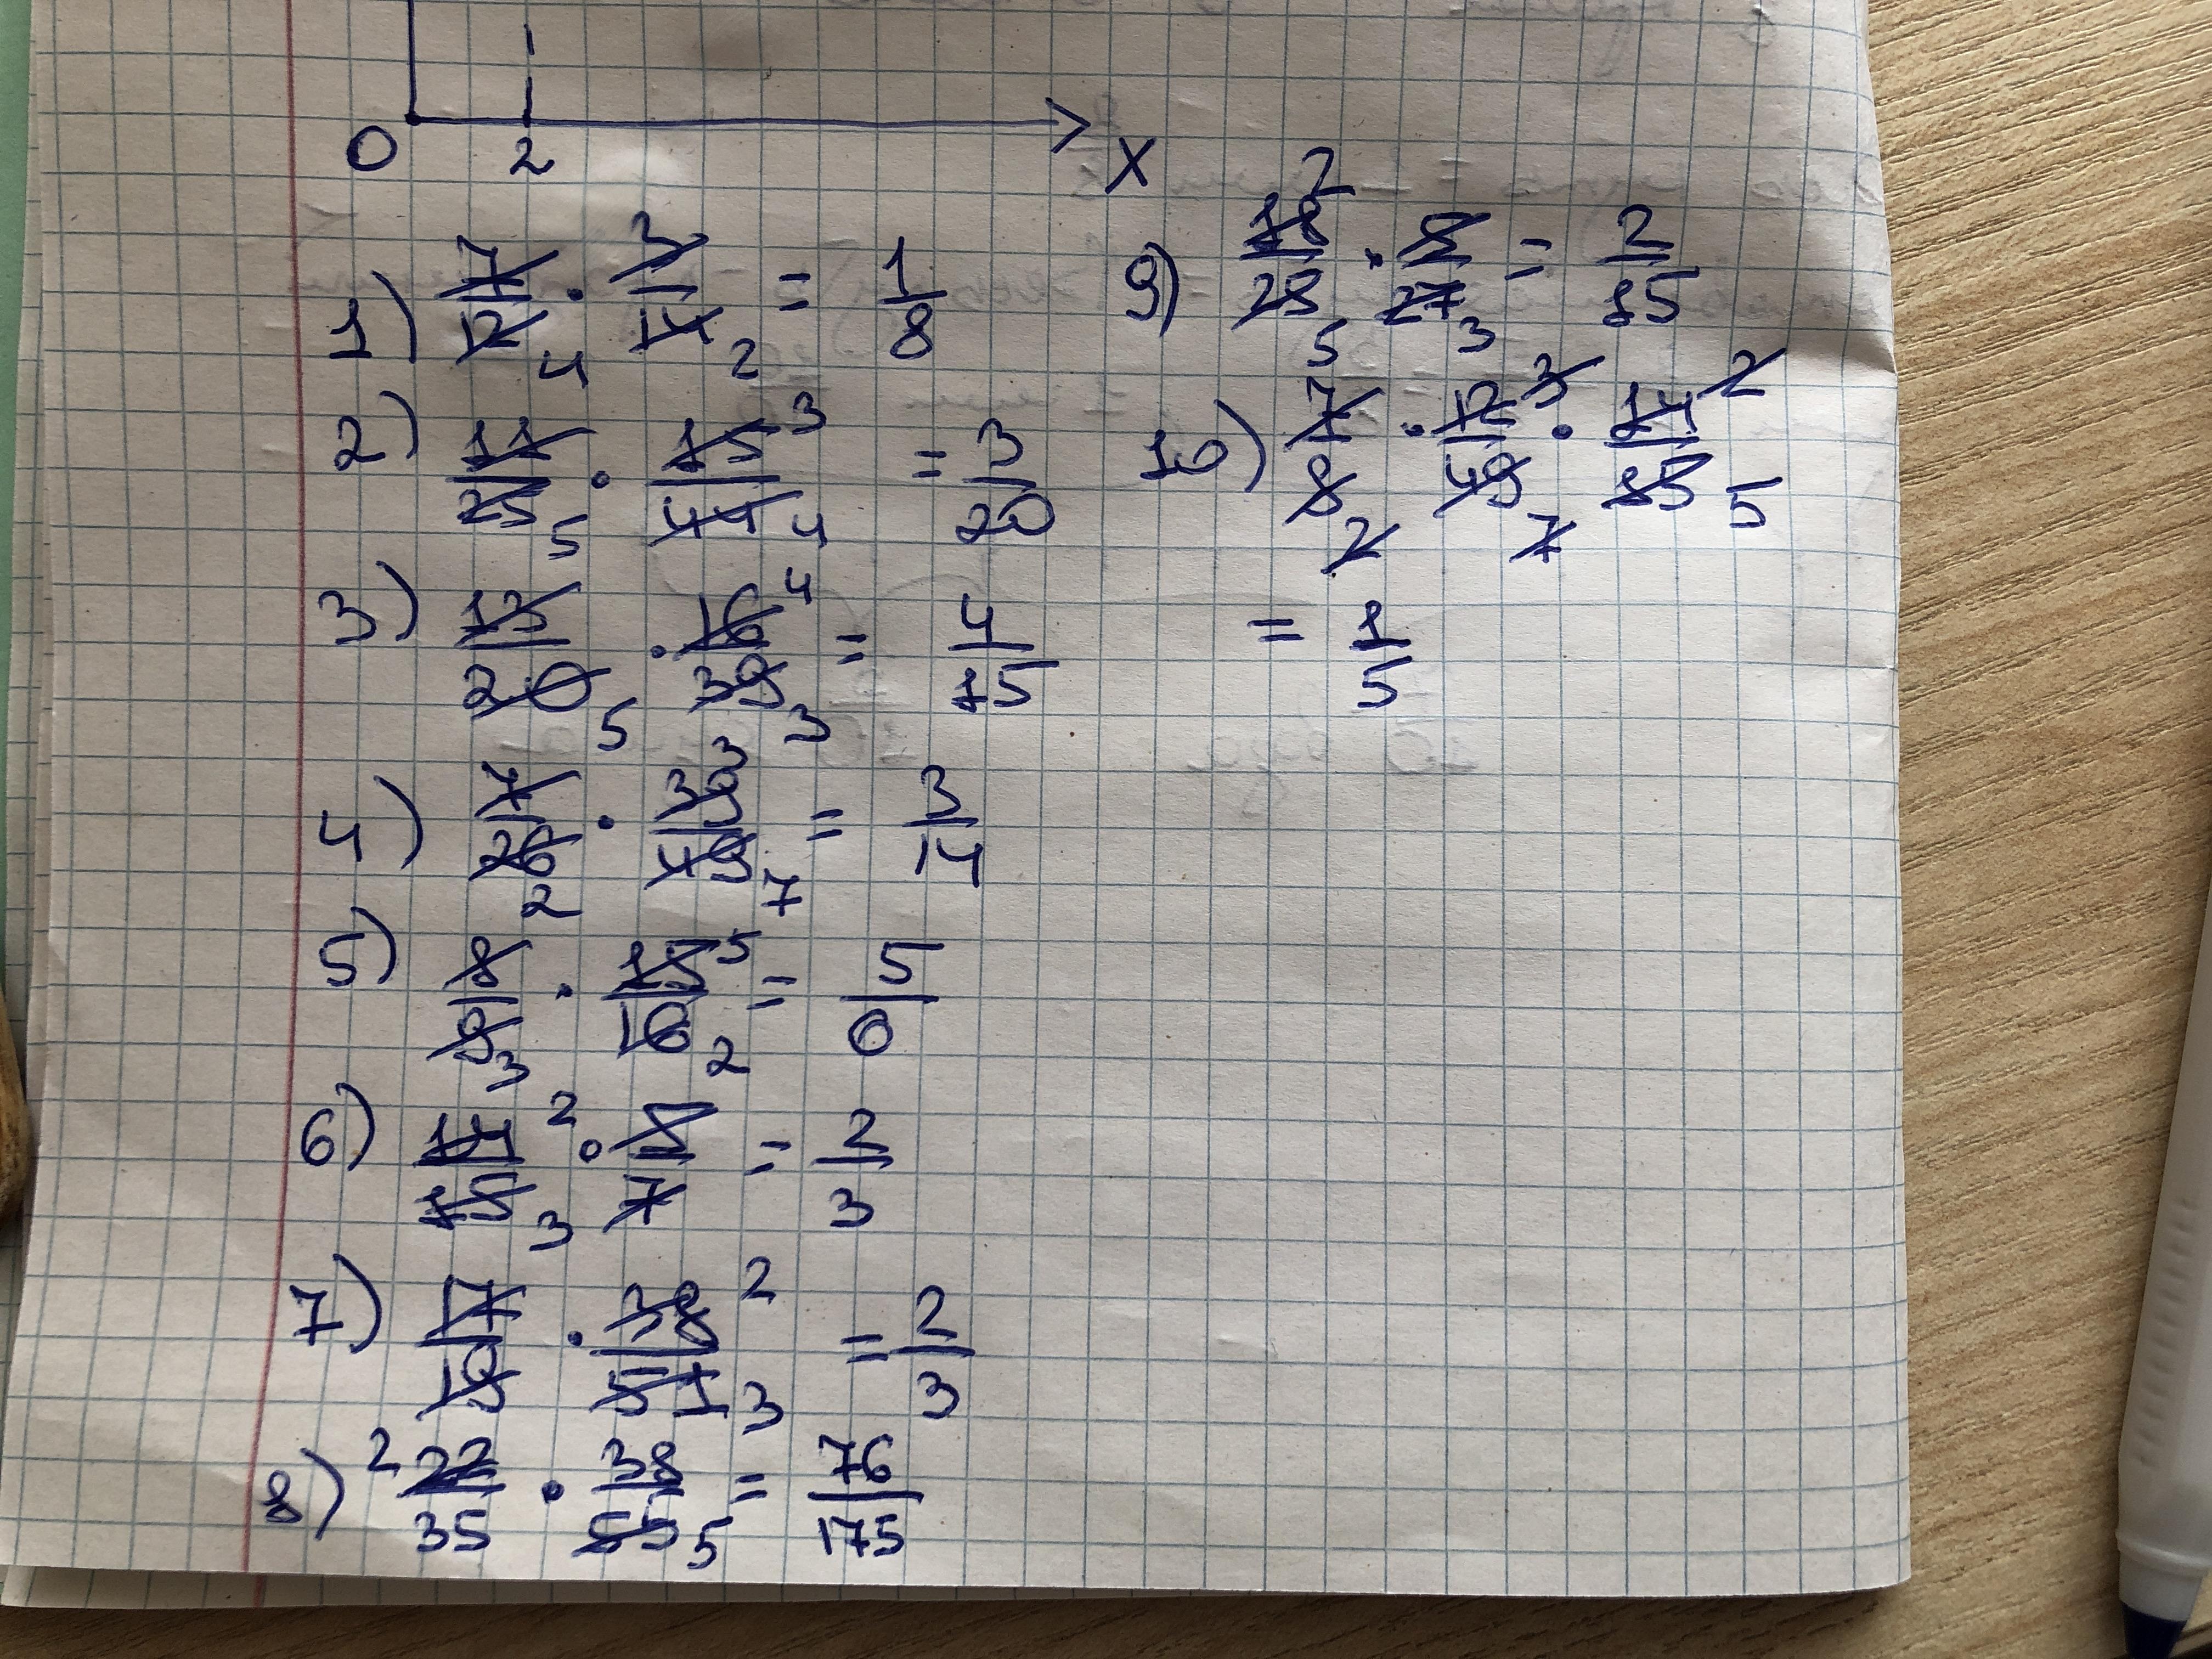 0 2 X
1) 7/12 4 · 3/14 2 = 1/8
2) 11/25 5 · 15 3/44 4 = 3/20
3) 13/20 5 · 16 4/39 3 = 4/15
4) 7/26 2 · 39 3/49 7 = 3/14
5) 8/9 3 · 15 5/16 2 = 5/6
6) 14 2/15 3 · 5/7 = 2/3
7) 17/19 · 38 2/51 3 = 2/3
8) 2 22/35 · 38/55 5 = 76/175
9) 18 2/25 5 · 5/27 3 = 2/15
10) 7/8 2 · 12 3/49 7 · 14 2/15 5
= 1/5